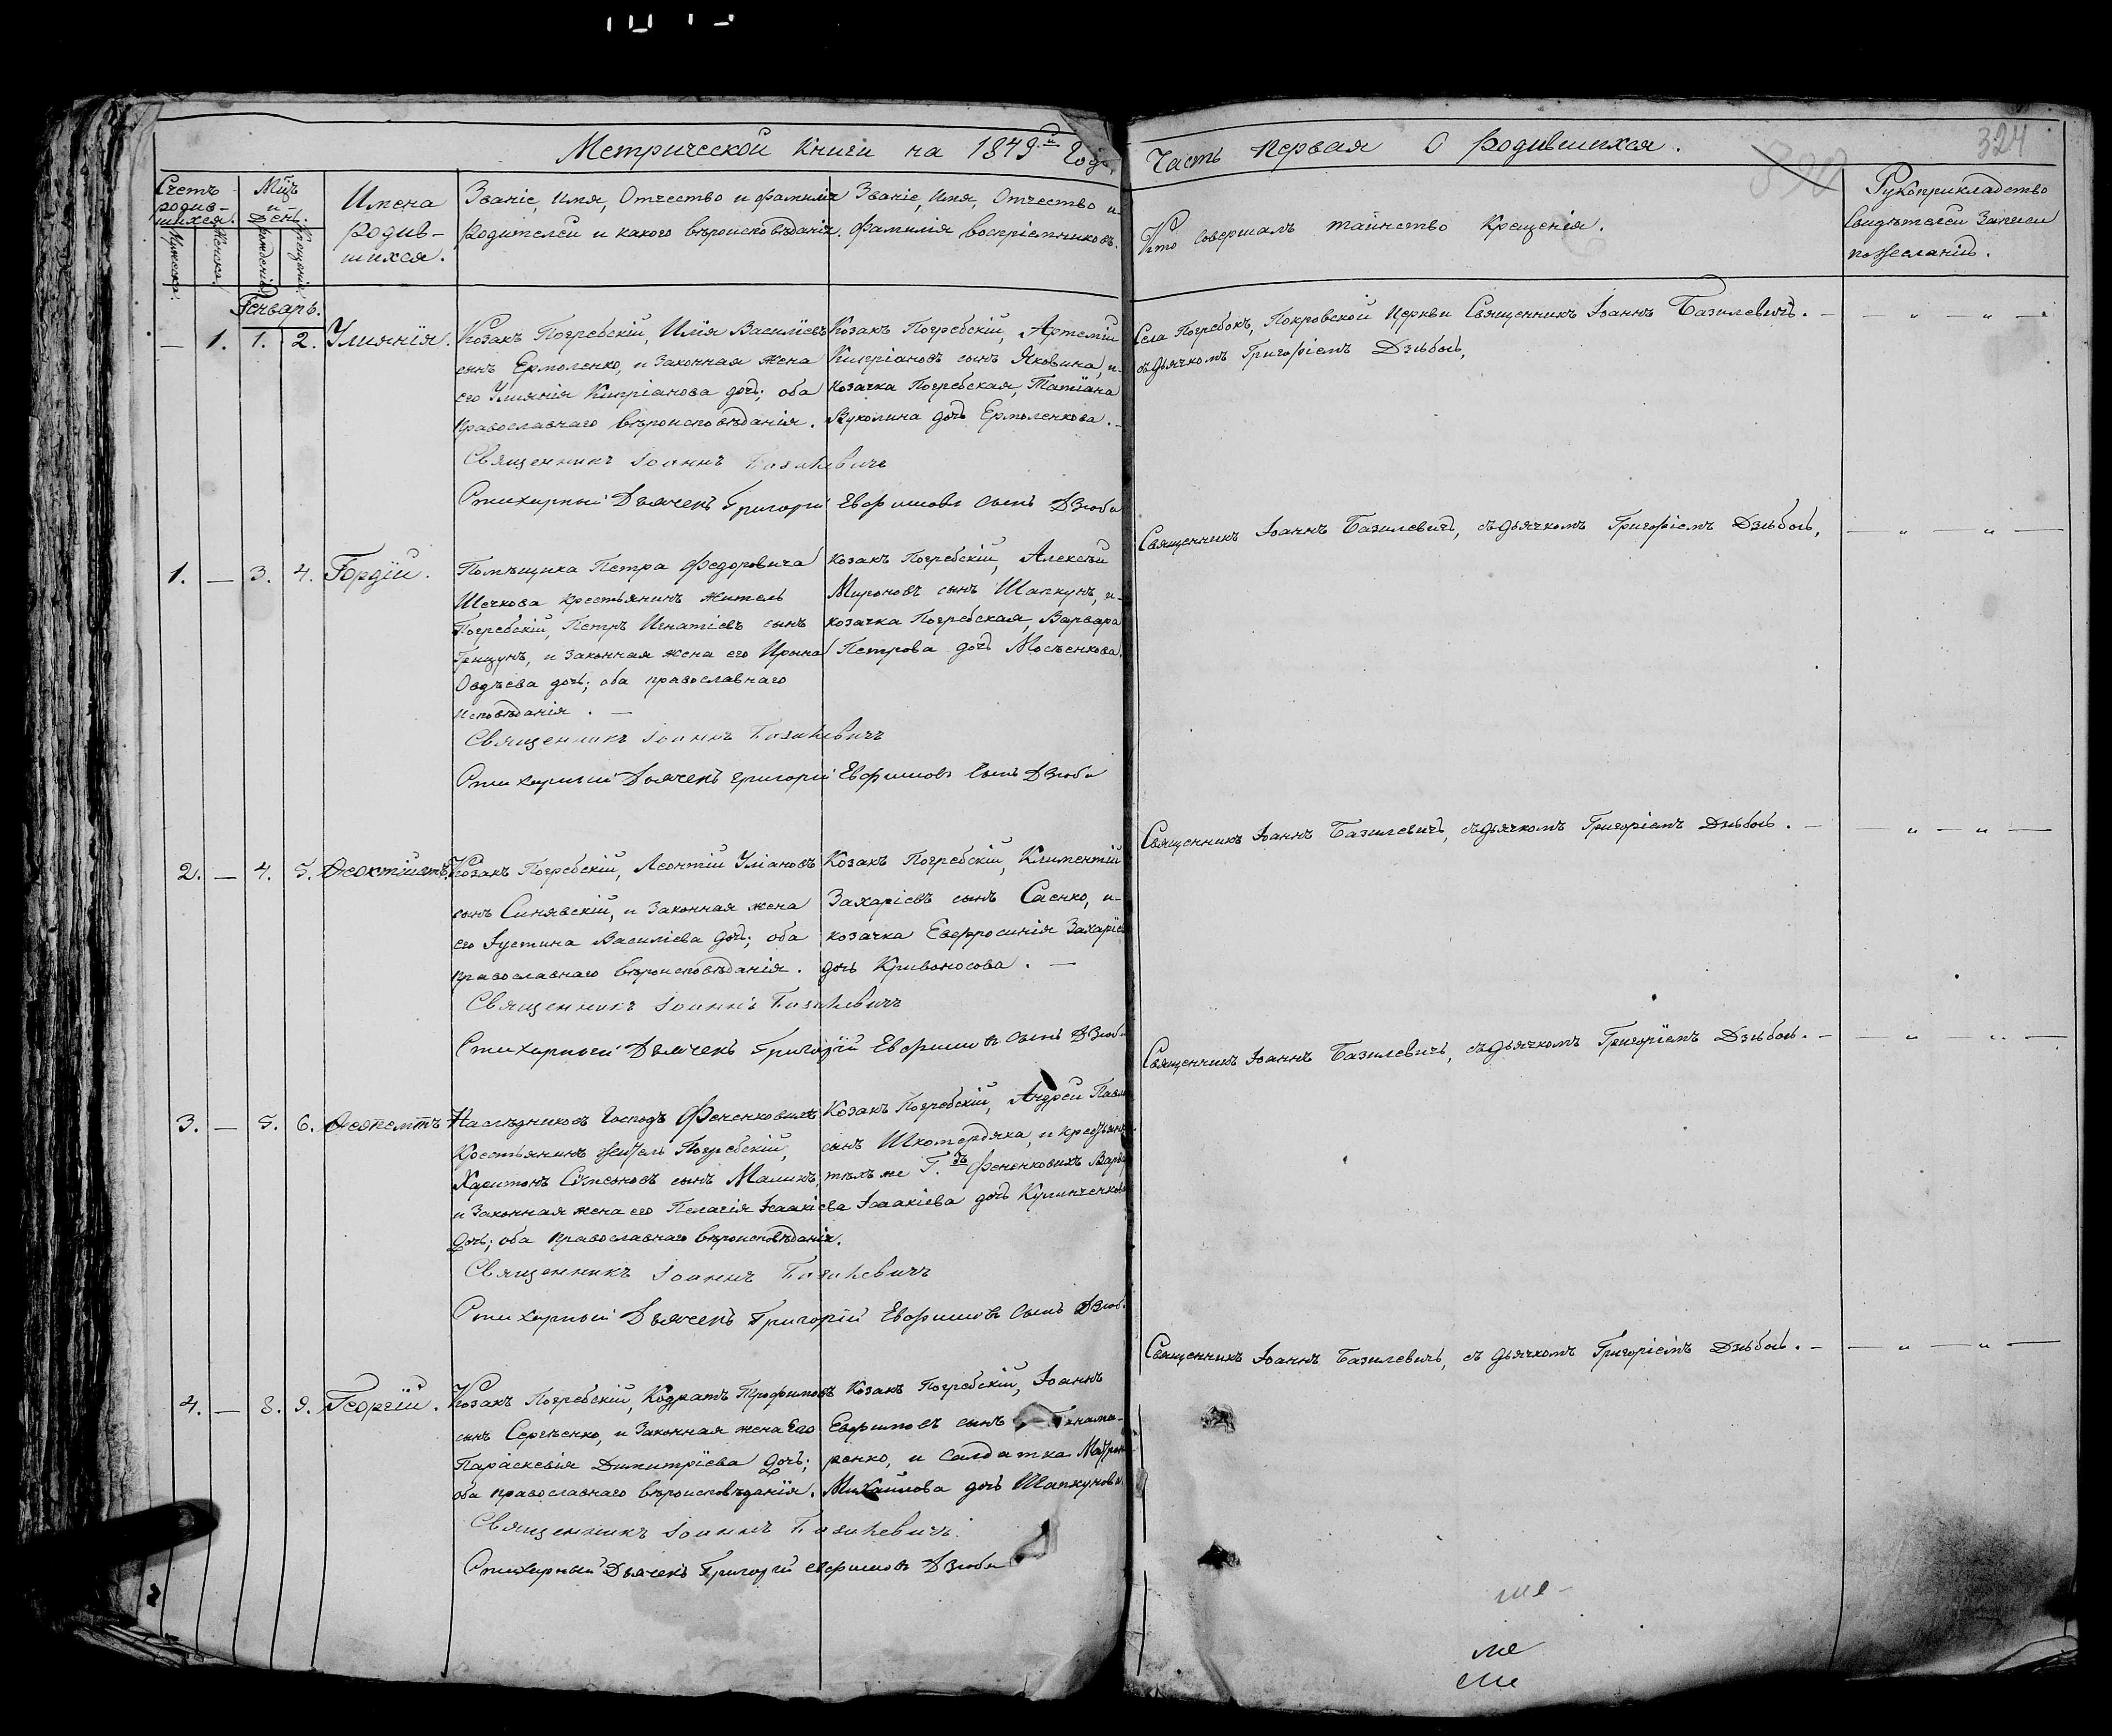 Метрической книги на 1849й Годъ,
Часть первая О родившихся.
324
Счетъ родив-
шихся.
Мцъ
и
День.
Имена
родив-
шихся.
Званіе, имя, Отчество и фамилія
Родителей и какого вѣроисповѣданія.
Званіе, имя, Отчество и
фамилія воспріемниковъ.
Кто совершалъ таинство Крещенія.
Рукоприкладство
свидѣтелей записи
по желанію.
Мужеска.
Женска.
рожденія
Крещенія
Генварь.
— 1. 1. 2. Улиянія.
Козакъ Погребскій, Илія Василіевъ
сынъ Ермоленко, и законная жена
его Улиянія Кипріанова дочь; оба
православнаго вѣроисповѣданія.
Козакъ Погребскій, Артемій
Кипріановъ сынъ Яковина, и-
козачка Погребская, Татіана
Вуколина дочь Ермоленкова.
Священникъ Іоаннъ Базилевичъ
Стихарный Дьячекъ Григорій Евфимовъ сынъ Дзюба
Села Погребокъ, Покровской церкви Священникъ Іоаннъ Базилевичъ.
съ дьячкомъ Григоріемъ Дзюбою,
1. — 3. 4. Гордій.
Помѣщика Петра Федоровича
Щечкова крестьянинъ житель
Погребскій, Петръ Игнатіевъ сынъ
Грицунъ, и законная жена его Ирина
Овдѣева дочь; оба православнаго
исповѣданія. —
Козакъ Погребскій, Алексѣй
Мироновъ сынъ Шапкунъ, и-
козачка Погребская, Варвара
Петрова дочь Мосѣенкова.
Священникъ Іоаннъ Базилевичъ
Стихарный Дьячекъ Григорій Евфимовъ сынъ Дзюба
Священникъ Іоаннъ Базилевичъ, съ дьячкомъ Григоріемъ Дзюбою,
2. — 4. 5. Феоктистъ.
Козакъ Погребскій, Леонтій Уліановъ
сынъ Синявскій, и законная жена
его Іустина Василіева дочь; оба
православнаго вѣроисповѣданія.
Козакъ Погребскій, Климентій
Захаріевъ сынъ Саенко, и-
козачка Евфросинія Захаріев
дочь Кривоносова. —
Священникъ Іоаннъ Базилевичъ
Стихарный Дьячекъ Григорій Евфимовъ сынъ Дзюба
Священникъ Іоаннъ Базилевичъ, съ дьячкомъ Григоріемъ Дзюбою. —
3. — 5. 6. Феопемптъ
Наслѣдниковъ Господъ Фененковыхъ
Крестьянинъ житель Погребскій,
Харитонъ Симеоновъ сынъ Маликъ,
и законная жена его Пелагія Ісаакіева
дочь; оба православнаго вѣроисповѣданія.
Козакъ Погребскій, Андрей Павло
сынъ Шкомердяка, и крестьянк
тѣхъ же Г.дъ Фененковыхъ Варва
Ісаакіева дочь Куличенкова
Священникъ Іоаннъ Базилевичъ
Стихарный Дьячекъ Григорій Евфимовъ сынъ Дзюб
Священникъ Іоаннъ Базилевичъ, съ дьячкомъ Григоріемъ Дзюбою. —
4. — 8. 9. Георгій.
Козакъ Погребскій, Кодратъ Трофимовъ
сынъ Сергѣенко, и законная жена его
Параскевія Димитріева дочь;
оба православнаго вѣроисповѣданія.
Козакъ Погребскій, Іоаннъ
Евфимовъ сынъ
ренко, и солдатка Матрон
Михайлова дочь Шапкунова
Священникъ Іоаннъ Базилевичъ.
Стихарный Дьячекъ Григорій Евфимовъ Дзюба